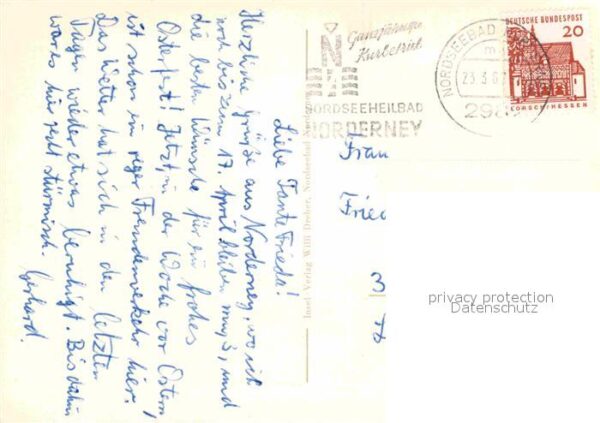 Liebe Tante Frieda!
Herzliche Grüße aus Norderney, wo ich
noch bis zum 17. April bleiben muß, und
die besten Wünsche für ein frohes
Osterfest! Jetzt, in der Woche vor Ostern
ist schon ein reger Fremdenverkehr hier!
Das Wetter hat sich in den letzten
Tagen wieder etwas beruhigt. Bis dahin
war es hier recht stürmisch. Gerhard.
Insel Verlag Willi Dreher, Nordseebad Norderney
Ganzjähriger
Kurbetrieb
NORDSEEHEILBAD
NORDERNEY
NORDSEEBAD
23.3.67
298
DEUTSCHE BUNDESPOST
20
LORSCH/HESSEN
Frau
Fried
3
privacy protection
Datenschutz